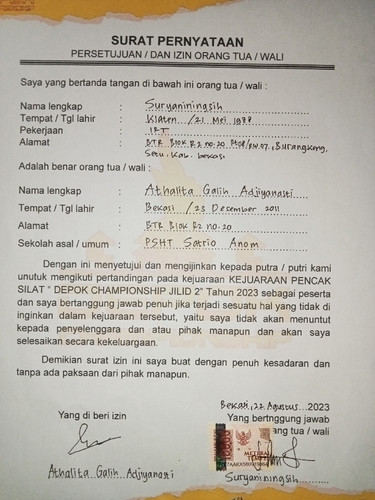 SURAT PERNYATAAN
PERSETUJUAN / DAN IZIN ORANG TUA / WALI
Saya yang bertanda tangan di bawah ini orang tua / wali :
Nama lengkap : Suryaniningsih
Tempat / Tgl lahir : Klaten /21 Mei 1977
Pekerjaan : IRT
Alamat : BTR Blok R2 no.20 /RW.07, Burangkeng,
Setu. Kab. bekasi
Adalah benar orang tua / wali :
Nama lengkap : Athalita Galih Adjiyanasti
Tempat / Tgl lahir : Bekasi /23 Desember 2011
Alamat : BTR Blok R2 no.20
Sekolah asal / umum : PSHT Satrio Anom
Dengan ini menyetujui dan mengijinkan kepada putra / putri kami
unutuk mengikuti pertandingan pada kejuaraan KEJUARAAN PENCAK
SILAT " DEPOK CHAMPIONSHIP JILID 2" Tahun 2023 sebagai peserta
dan saya bertanggung jawab penuh jika terjadi sesuatu hal yang tidak di
inginkan dalam kejuaraan tersebut, yaitu saya tidak akan menuntut
kepada penyelenggara dan atau pihak manapun dan akan saya
selesaikan secara kekeluargaan.
Demikian surat izin ini saya buat dengan penuh kesadaran dan
tanpa ada paksaan dari pihak manapun.
Bekasi, 22 Agustus ...2023
Yang di beri izin
Yang bertnggung jawab
ang tua / wali
METERAI
Athalita Galih Adjiyanasti
Suryaniningsih